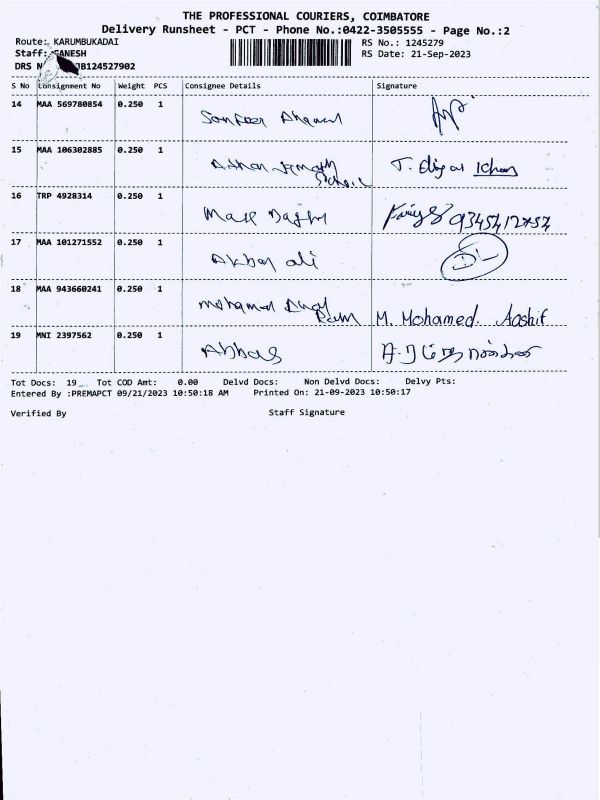 THE PROFESSIONAL COURIERS, COIMBATORE
Delivery Runsheet - PCT - Phone No.:0422-3505555 - Page No.:2
Route: KARUMBUKADAI RS No.: 1245279
Staff: GANESH RS Date: 21-Sep-2023
DRS B124527902
S No Consignment No Weight PCS Consignee Details Signature
14 MAA 569780854 0.250 1
15 MAA 106302885 0.250 1 T.
16 TRP 4928314 0.250 1
17 MAA 101271552 0.250 1 Akbar ali
18 MAA 943660241 0.250 1 Mohamed M. Mohamed. Aashif
19 MNI 2397562 0.250 1 Abbas
Tot Docs: 19 Tot COD Amt: 0.00 Delvd Docs: Non Delvd Docs: Delvy Pts:
Entered By :PREMAPCT 09/21/2023 10:50:18 AM Printed On: 21-09-2023 10:50:17
Verified By Staff Signature